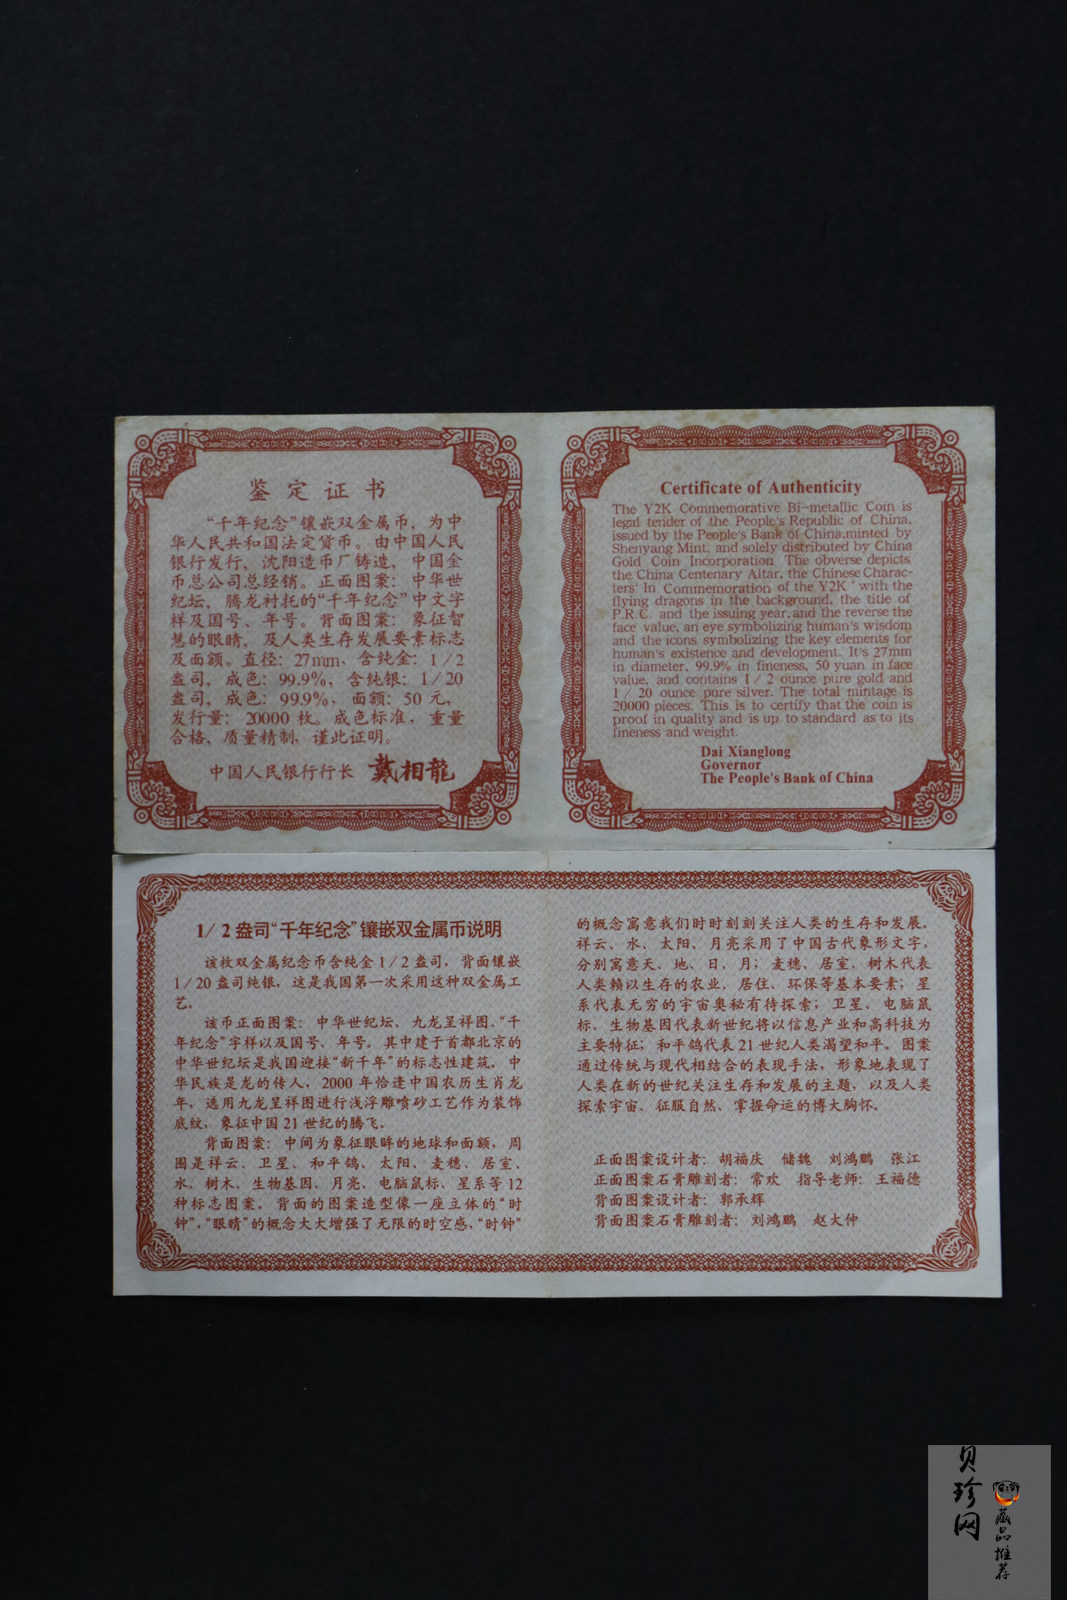 鉴定证书
“千年纪念”镶嵌双金属币，为中
华人民共和国法定货币。由中国人民
银行发行、沈阳造币厂铸造，中国金
币总公司总经销。正面图案：中华世
纪坛、腾龙衬托的“千年纪念”中文字
样及国号、年号。背面图案：象征智
慧的眼睛，及人类生存发展要素标志
及面额。直径：27mm、含纯金：1/2
盎司，成色：99.9%，含纯银：1/20
盎司，成色：99.9%，面额：50元，
发行量：20000枚。成色标准，重量
合格、质量精制，谨此证明。
中国人民银行行长 戴相龍
Certificate of Authenticity
The Y2K Commemorative Bi-metallic Coin is
legal tender of the People's Republic of China,
issued by the People's Bank of China,minted by
Shenyang Mint, and solely distributed by China
Gold Coin Incorporation The obverse depicts
the China Centenary Altar, the Chinese Charac-
ters' In Commemoration of the Y2K ' with the
flying dragons in the background, the title of
P.R.C. and the issuing year,and the reverse the
face value, an eye symbolizing human's wisdom
and the icons symbolizing the key elements for
human's existence and development. It's 27mm
in diameter, 99.9% in fineness, 50 yuan in face
value, and contains 1/2 ounce pure gold and
1/20 ounce pure silver. The total mintage is
20000 pieces. This is to certify that the coin is
proof in quality and is up to standard as to its
fineness and weight.
Dai Xianglong
Governor
The People's Bank of China
1/2盎司“千年纪念”镶嵌双金属币说明
该枚双金属纪念币含纯金1/2盎司，背面镶嵌
1/20盎司纯银，这是我国第一次采用这种双金属工
艺。
该币正面图案：中华世纪坛、九龙呈祥图、“千
年纪念”字样以及国号、年号。其中建于首都北京的
中华世纪坛是我国迎接“新千年”的标志性建筑。中
华民族是龙的传人，2000年恰逢中国农历生肖龙
年，选用九龙呈祥图进行浅浮雕喷砂工艺作为装饰
底纹，象征中国21世纪的腾飞。
背面图案：中间为象征眼眸的地球和面额，周
围是祥云、卫星、和平鸽、太阳、麦穗、居室、
水、树木、生物基因、月亮、电脑鼠标、星系等12
种标志图案。背面的图案造型像一座立体的“时
钟”，“眼睛”的概念大大增强了无限的时空感，“时钟”
的概念寓意我们时时刻刻关注人类的生存和发展。
祥云、水、太阳、月亮采用了中国古代象形文字，
分别寓意天、地、日、月；麦穗、居室、树木代表
人类赖以生存的农业，居住、环保等基本要素；星
系代表无穷的宇宙奥秘有待探索；卫星、电脑鼠
标、生物基因代表新世纪将以信息产业和高科技为
主要特征；和平鸽代表21世纪人类渴望和平。图案
通过传统与现代相结合的表现手法，形象地表现了
人类在新的世纪关注生存和发展的主题，以及人类
探索宇宙、征服自然、掌握命运的博大胸怀。
正面图案设计者：胡福庆 储魏 刘鸿鹏 张江
正面图案石膏雕刻者：常欢 指导老师：王福德
背面图案设计者：郭承辉
背面图案石膏雕刻者：刘鸿鹏 赵大仲
贝珍网
藏品推荐